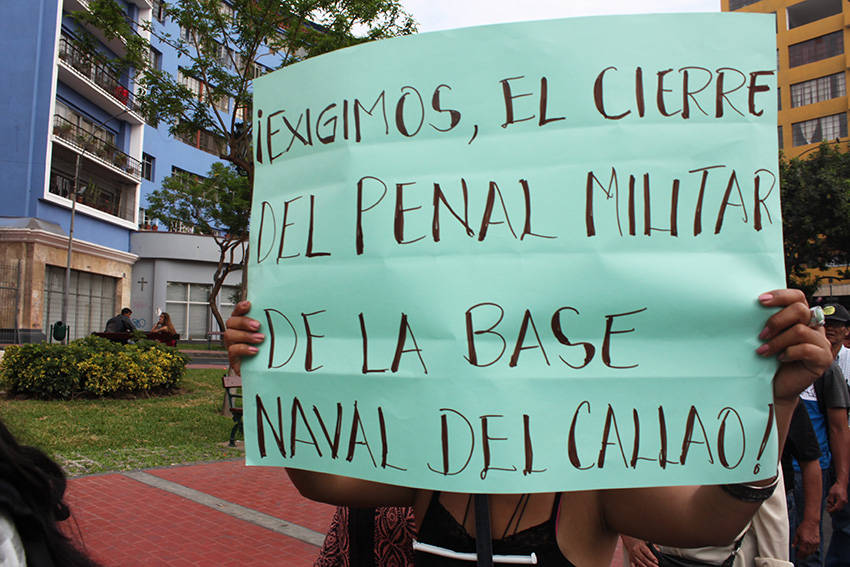 ¡EXIGIMOS, EL CIERRE
DEL PENAL MILITAR
DE LA BASE
NAVAL DEL CALLAO!